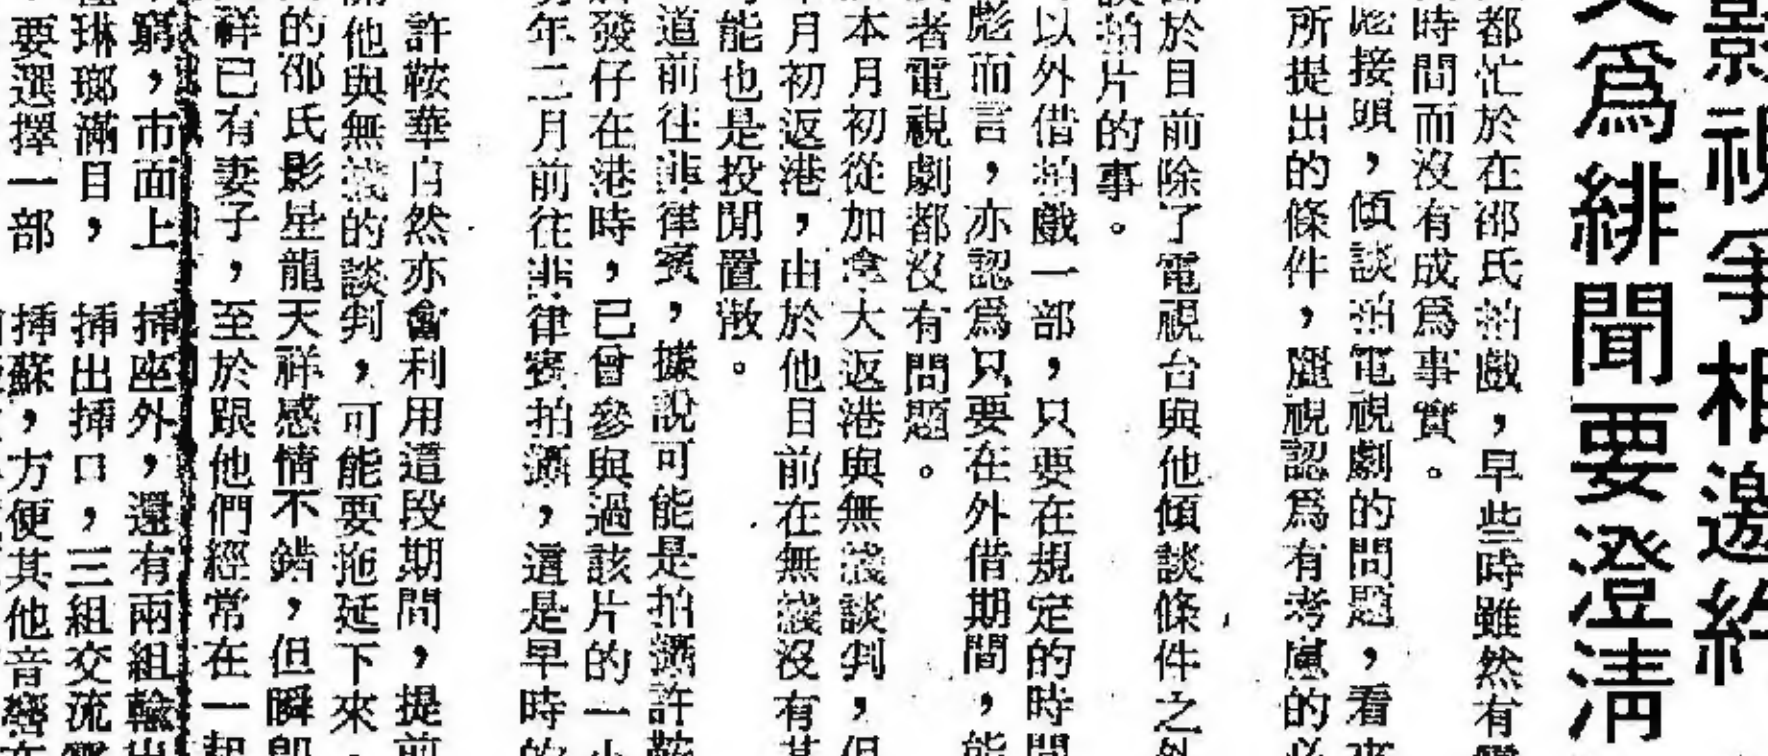 影視爭相邀約
爲緋聞要澄清
都忙於在邵氏拍戲，早些時雖然有
時間而沒有成爲事實。
彪接頭，傾談拍電視劇的問題，看來
所提出的條件，麗視認爲有考慮的必
於目前除了電視台與他傾談條件之外
談拍片的事。
以外借拍戲一部，只要在規定的時間
彪而言，亦認爲只要在外借期間，能
者電視劇都沒有問題。
本月初從加拿大返港與無綫談判，但
月初返港，由於他目前在無綫沒有甚
能也是投閒置散。
道前往菲律賓，據說可能是拍攝許鞍
發仔在港時，已曾參與過該片的一小
年二月前往菲律賓拍攝，這是早時的
許鞍華自然亦會利用這段期間，提前
他與無綫的談判，可能要拖延下來，
的邵氏影星龍天祥感情不錯，但瞬即
祥已有妻子，至於跟他們經常在一起
窮，市面上
琳瑯滿目，
要選擇一部
插座外，還有兩組輸出
插出插口，三組交流電
插蘇，方便其他音響在